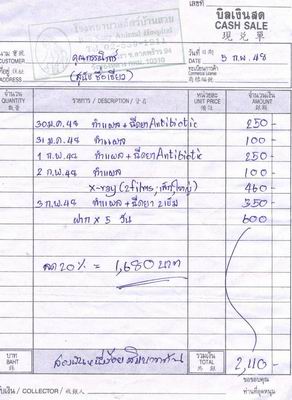 เลขที่
บิลเงินสด
CASH SALE
現兑單
โรงพยาบาลสัตว์บ้านสวน
10310
นาม
CUSTOMER
คุณกรรณิการ์
(สุนัข ชื่อเขียว)
วันที่
DATE
5 ก.พ. 48
ที่อยู่
ADDRESS
ทะเบียนการค้า
Commerce Licence
จำนวน
QUANTITY
รายการ / DESCRIPTION /
หน่วยละ
UNIT PRICE
จำนวนเงิน
AMOUNT
30 ม.ค. 48 ทำแผล + ฉีดยา Antibiotic 250 -
31 ม.ค. 48 ทำแผล 100 -
1 ก.พ. 48 ทำแผล + ฉีดยา Antibiotic 250 -
2 ก.พ. 48 ทำแผล 100 -
x-ray (2 films, เล็ก, ใหญ่) 460 -
3 ก.พ. 48 ทำแผล + ฉีดยา 2 เข็ม 350 -
ฝาก x 5 วัน 600
ลด 20% = 1,680 บาท
บาท
BAHT
สองพันหนึ่งร้อยสิบบาทถ้วน
รวมเงิน
TOTAL
2,110 -
ผู้รับเงิน / COLLECTOR / 收銀人
ขอขอบคุณ
ท่านที่อุดหนุน